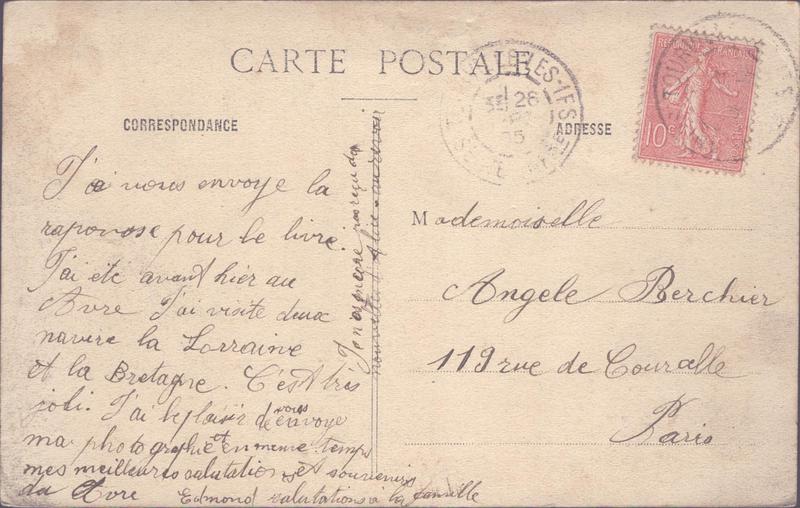 CARTE POSTALE
CORRESPONDANCE
ADRESSE
REPUBLIQUE FRANÇAISE
10c
28
J'ai vous envoye la
raponose pour le livre.
J'ai été avant hier au
Avre J'ai visite deux
navire la Lorraine
et la Bretagne. C'est très
joli. J'ai le plaisir de vous envoye
ma photographie et en meme temps
mes meilleures salutations et souvenirs
du Avre Edmond salutations à la famille
Je n'ai encore pas reçu de
Mademoiselle
Angele Berchier
119 rue de Couralle
Paris